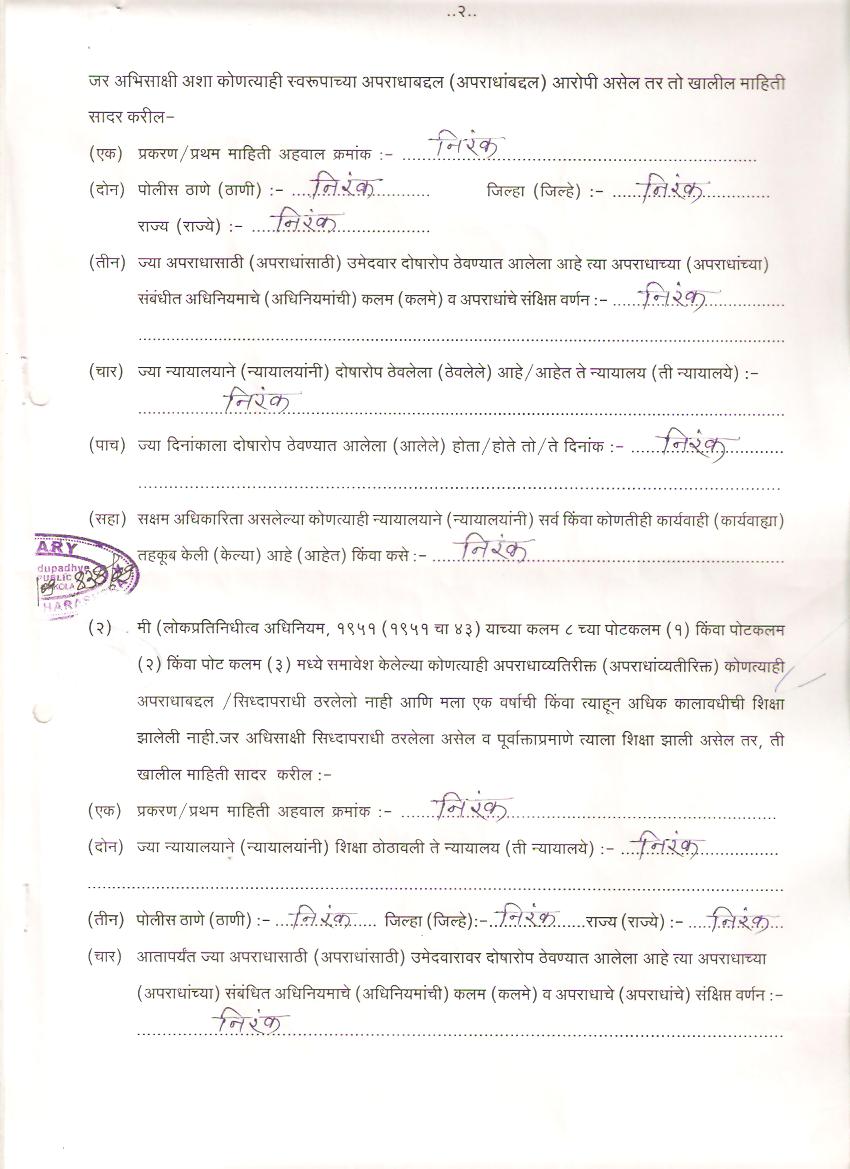 ..२..
जर अभिसाक्षी अशा कोणत्याही स्वरूपाच्या अपराधाबद्दल (अपराधांबद्दल) आरोपी असेल तर तो खालील माहिती
सादर करील-
(एक) प्रकरण/प्रथम माहिती अहवाल क्रमांक :- निरंक
(दोन) पोलीस ठाणे (ठाणी) :- निरंक जिल्हा (जिल्हे) :- निरंक
राज्य (राज्ये) :- निरंक
(तीन) ज्या अपराधासाठी (अपराधांसाठी) उमेदवार दोषारोप ठेवण्यात आलेला आहे त्या अपराधाच्या (अपराधांच्या)
संबंधीत अधिनियमाचे (अधिनियमांची) कलम (कलमे) व अपराधांचे संक्षिप्त वर्णन :- निरंक
(चार) ज्या न्यायालयाने (न्यायालयांनी) दोषारोप ठेवलेला (ठेवलेले) आहे/आहेत ते न्यायालय (ती न्यायालये) :-
निरंक
(पाच) ज्या दिनांकाला दोषारोप ठेवण्यात आलेला (आलेले) होता/होते तो/ते दिनांक :- निरंक
(सहा) सक्षम अधिकारिता असलेल्या कोणत्याही न्यायालयाने (न्यायालयांनी) सर्व किंवा कोणतीही कार्यवाही (कार्यवाह्या)
तहकूब केली (केल्या) आहे (आहेत) किंवा कसे :- निरंक
ARY
dupadhye
PUBLIC
KOLA
HARAS
(२) मी (लोकप्रतिनिधीत्व अधिनियम, १९५१ (१९५१ चा ४३) याच्या कलम ८ च्या पोटकलम (१) किंवा पोटकलम
(२) किंवा पोट कलम (३) मध्ये समावेश केलेल्या कोणत्याही अपराधाव्यतिरीक्त (अपराधांव्यतीरिक्त) कोणत्याही
अपराधाबद्दल /सिध्दापराधी ठरलेलो नाही आणि मला एक वर्षाची किंवा त्याहून अधिक कालावधीची शिक्षा
झालेली नाही.जर अधिसाक्षी सिध्दापराधी ठरलेला असेल व पूर्वाक्ताप्रमाणे त्याला शिक्षा झाली असेल तर, ती
खालील माहिती सादर करील :-
(एक) प्रकरण/प्रथम माहिती अहवाल क्रमांक :- निरंक
(दोन) ज्या न्यायालयाने (न्यायालयांनी) शिक्षा ठोठावली ते न्यायालय (ती न्यायालये) :- निरंक
(तीन) पोलीस ठाणे (ठाणी) :- निरंक जिल्हा (जिल्हे):- निरंक राज्य (राज्ये) :- निरंक
(चार) आतापर्यंत ज्या अपराधासाठी (अपराधांसाठी) उमेदवारावर दोषारोप ठेवण्यात आलेला आहे त्या अपराधाच्या
(अपराधांच्या) संबंधित अधिनियमाचे (अधिनियमांची) कलम (कलमे) व अपराधाचे (अपराधांचे) संक्षिप्त वर्णन :-
निरंक